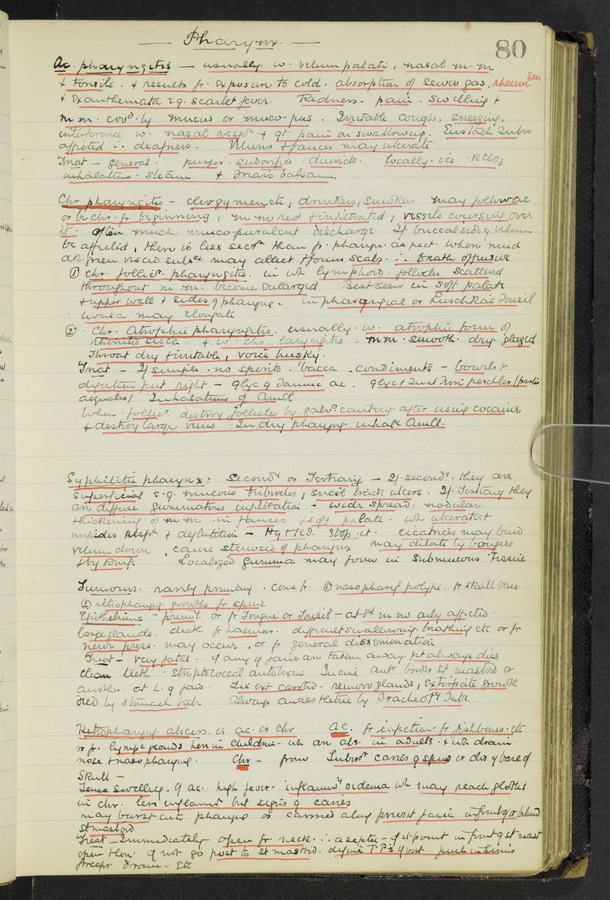 — Pharynx. — 80
Ac. pharyngitis — usually w. velum palati, nasal m. m
& tonsils. & results fr. exposure to cold. absorption of sewer gas, rheum
& Exanthemata e.g. scarlet fever. Redness. pain. Swelling &
m m. cov^d. by mucus or muco-pus. Irritable cough, sneezing,
interference w. nasal resp^n & g^t pain on swallowing. Eustach tubes
affected ∴ deafness. Uvula & fauces may ulcerate
Treat — general. purges. sudorifics. diuretics. locally. ice. KClO3
inhalations. steam & Friars balsam.
Chr pharyngitis — clergymen etc, drunkers, smokers may follow ac
or be chr. fr beginning, m m red & infiltrated, vessels coursing over
it. often much muco purulent discharge If buccal side of velum
be affected, there is less secr^n than fr pharyn. aspect. when much
may collect & form scabs. ∴ breath offensive
① Chr. follic^r. pharyngitis. in wh lymphoid follicles scattered
throughout m m become enlarged Best seen in soft palate
& upper wall & sides of pharynx. in pharyngeal or Luschka's Tonsil
uvula may elongate
② Chr. Atrophic pharyngitis. usually w. atrophic form of
rhinitis sicca & w. chr laryngitis. m m. smooth. dry. glazed
Throat dry & irritable, voice husky.
Treat — If simple. no spirits. 'bacca. condiments — bowels &
digestion put right — glyc of Tannic ac. glyc &
aequales/ Inhalations of Am Cl
When follic^r destroy follicles by galv^c cautery after using cocaine
& destroy large veins. In dry pharyng inhal^n Am Cl.
Syphilitic pharynx: Second^y or Tertiary — If second^y. they are
superficial e.g. mucous tubercles, snail track ulcers. If Tertiary they
are diffuse gummatous infiltration — wide spread. nodular.
thickening of m m in fauces & soft palate. wh ulcerates &
impedes resp^n & deglutition — Hg & KI. stop it. Cicatrices may bind
velum down. cause stenosis of pharynx may dilate by bougies
& by knife Localised gumma may form in Submucous Tissue
Tumours. rarely primary. come fr ① nasophary^l polypi fr skull base
② retropharyng growths fr spine
Epithelioma — prim^y. or fr Tongue or Tonsil — at 1^st m m only affected.
large glands. death fr haemor. difficult swallowing, breathing etc or fr
nerve press. may occur, or fr general dissemination
Treat — very fatal. if any gr pains are taken away pt always dies
clean teeth. streptococcal antitoxin Incise ant^r border St mastoid or
another at L. of jaw. Tie Ext carotid. remove glands, extirpate growth
Feed by stomach tube. Always anaesthetise by Tracheot^y Tube
Retropharyng abscess. is ac. or chr AC. fr injection fr fishbones. etc
or fr lymph glands here in children. wh are abs^t in adults & wh drain
nose & nasopharynx. Chr — from Tuberc^r caries of spine or dis of base of
skull —
Tense swelling. if ac. high fever. inflamm^y oedema wh may reach glottis
in chr. less inflamm^n but signs of caries
may burst into pharynx or carried along prevert fascia in front of or behind
st mastoid
Treat Immediately open fr neck. ∴ aseptic — if it point in front of st mast
open there. if not go post to St mastoid. define T.P's of vert. push in Sinus
forceps Drain. Etc